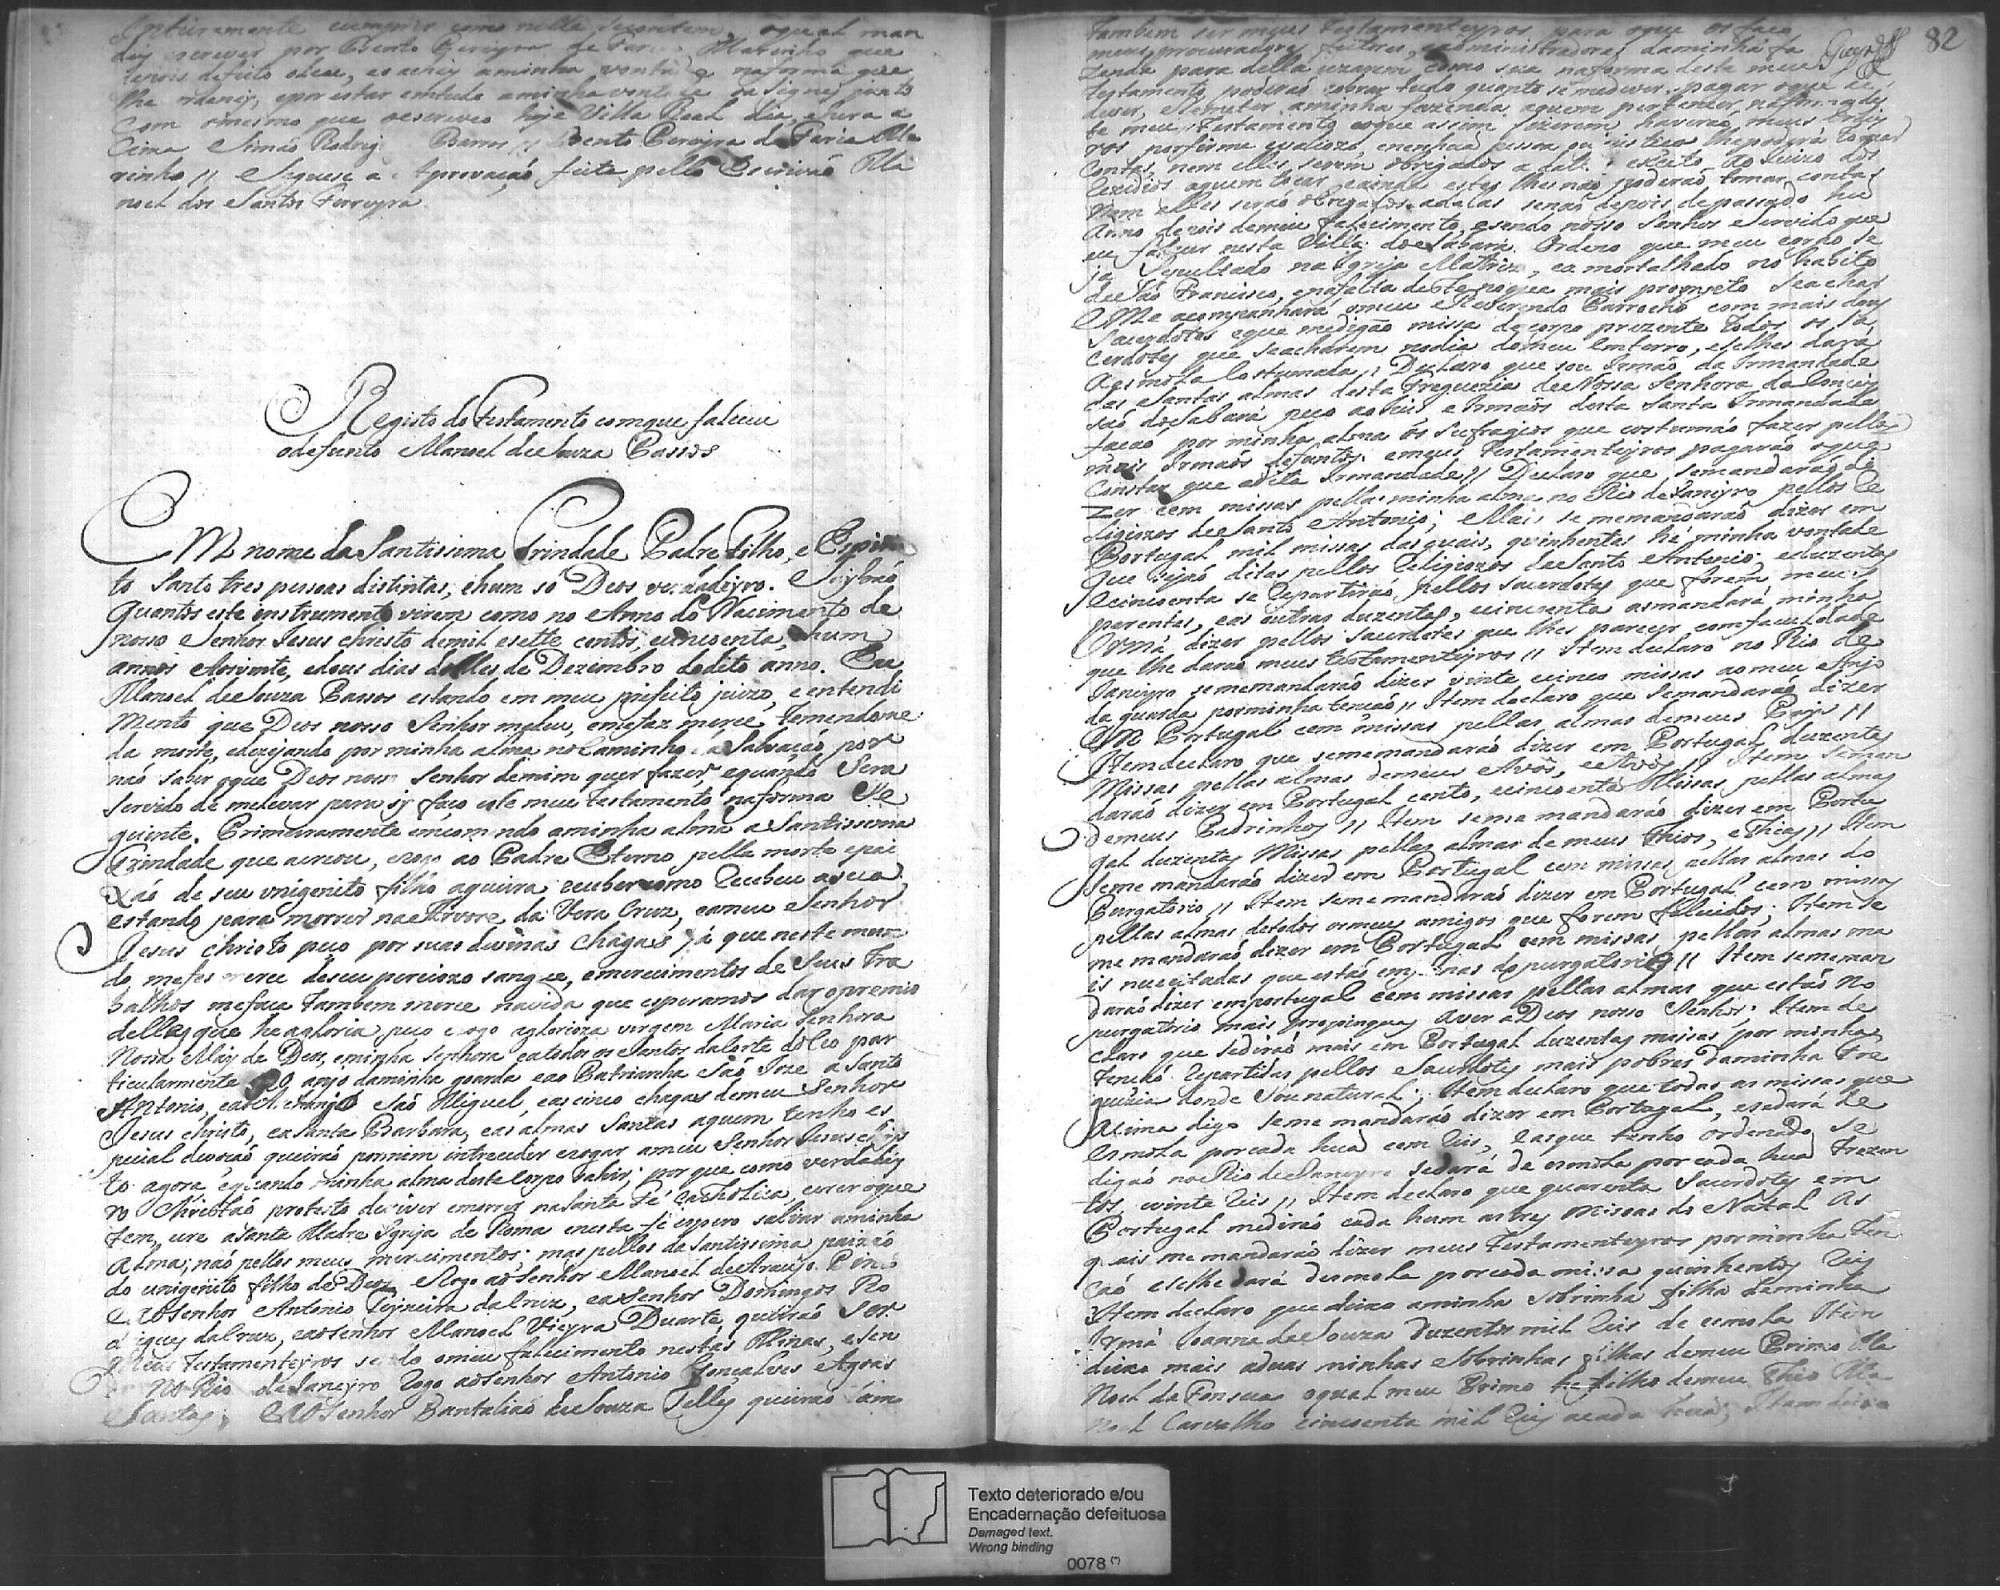 Inteiramente cumprir como nella se contem, o qual man
dey escrever por Bento Pereyra de Faria Marinho que
depois de feito o leu, e o achey a minha vontade e na forma que
lhe ordeney, e por estar em tudo a minha vontade o asigney junto
com o mesmo que o escreveo hoje Villa Real dia, e hera a
Cima Simão Rodrig Barros // Bento Pereyra de Faria Ma
rinho // e Seguese a Aprovação feita pello Escrivão Ma
noel dos Santos Ferreyra
Registo do Testamento com que faleceu
o defunto Manoel de Souza Passos
EM nome da Santissima Trindade Padre Filho, e Espiri
to Santo tres pessoas distintas, e hum só Deos verdadeyro. Saybão
quantos este instrumento virem como no Anno do Nacimento de
nosso Senhor Jesus Christo de mil e sette centos, e cincoenta, e hum
annos aos vinte, e dous dias do Mes de Dezembro do dito anno. Eu
Manoel de Souza Passos estando em meu prefeito juizo, e entendi
mento que Deos nosso Senhor me deu, e me faz merce, temendome
da morte, e dezejando por minha alma no Caminho da Salvação por
não saber o que Deos nosso Senhor de mim quer fazer, e quando Sera
servido de me levar para sy faço este meu testamento na forma Se
guinte. Primeiramente encomendo a minha alma a Santissima
Trindade que a creou, e rogo ao Padre Eterno pella morte e pai
xão de seu unigenito filho a queira receber como recebeu a sua
estando para morrer na Arvore da Vera Cruz, e a meu Senhor
Jesus Christo peço por suas divinas chagas já que neste mun
do me fes merce de seu percioso sangue, e merecimentos de Seus Tra
balhos me faça tambem merce na vida que esperamos dar o premio
delles que he a gloria, peço e rogo a gloriosa virgem Maria Senhora
Nossa May de Deos, e minha senhora e a todos os Santos da Corte do Ceo par
ticularmente ao anjo da minha goarda e ao Patriarcha São Joze a Santo
Antonio, e ao Archanjo São Miguel, e as cinco chagas de meu Senhor
Jesus Christo, e a Santa Barbara, e as almas Santas a quem tenho es
pecial devoção queirão por mim interceder e rogar a meu Senhor Jesus Chris
to agora e quando minha alma deste Corpo sahir; por que como verdadey
ro Christão protesto de viver e morrer na santa Fé Catholica, e crer o que
tem, e cre a Santa Madre Igreja de Roma e nesta fé espero salvar a minha
Alma; não pellos meus merecimentos; mas pellos da Santissima paixão
do unigenito filho de Deos. e Rogo ao Senhor Manoel de Araujo
e ao Senhor Antonio Teixeira da Cruz, e ao Senhor Domingos Ro
drigues da Cruz, e ao Senhor Manoel Vieyra Duarte, queirão Ser
meus Testamenteyros sendo o meu falecimento nestas Minas, e sen
do no Rio de Janeyro rogo ao Senhor Antonio Gonçalves Agoas
Santas; e ao Senhor Pantalião de Souza Telles queirão tam
82
tambem ser meus Testamenteyros para o que os faço
meus procuradores feitores, e administradores da minha fa
zenda para della uzarem como sua na forma deste meu
testamento poderão cobrar tudo quanto se me dever pagar o que de
dever, e Remeter a minha fazenda a quem pertencer na forma des
te meu Testamento e o que assim fizerem haverão meus Erdey
ros por firme e valiozo, e nenhua pessoa ou justiça lhe poderá tomar
Contas, nem elles serão obrigados a dalas exceto ao Juizo dos
Reziduos a quem tocar, e ainda estes lhes não poderão tomar contas
nem elles serão obrigados a dalas senão depois de passado hu
Anno depois de meu falecimento, e sendo nosso Senhor Servido que
eu faleser nesta Villa do Sabara. Ordeno que meu corpo se
ja Sepultado na Igreja Matriz, e amortalhado no habito
de São Francisco, e na falta deste no que mais prompto se achar
e Me acompanhará o meu Reverendo Parrocho com mais dous
Sacerdotes e que me digão missa de corpo prezente todos os sa
cerdotes que se acharem no dia do meu enterro, e se lhes dará
a esmola Costumada; Declaro que sou Irmão da Irmandade
das Santas almas desta Freguezia de Nossa Senhora da Concey
são do Sabará peço ao Juiz e Irmãos desta Santa Irmandade
fação por minha alma os sufragios que costumão fazer pellos
mais Irmãos defuntos e meus Testamenteyros pagarão o que
Constar que a dita Irmandade // Declaro que se mandarão di
zer cem missas pella minha alma no Rio de Janeyro pellos Re
ligiozos de Santo Antonio; e Mais se me mandarão dizer em
Portugal mil missas das quais, quinhentas hé minha vontade
que sejão ditas pellos Religiozos de Santo Antonio; e duzentas
e cincoenta se repartirão pellos sacerdotes que forem meus
parentes, e as outras duzentas, e cincoenta as mandará minha
Irmã dizer pellos sacerdotes que lhes parecer com faculdade
que lhe darão meus testamenteyros // Item declaro no Rio de
Janeyro se me mandarão dizer vinte e cinco missas ao meu Anjo
da guarda por minha tenção // Item declaro que se mandarão dizer
Em Portugal cem missas pellas almas de meus Pais //
Item declaro que se me mandarão dizer em Portugal duzentas
Missas pellas almas de meus Avós, e Avos // Item se man
darão dizer em Portugal cento, e cincoenta Missas pellas almas
de meus Padrinhos // Item se me mandarão dizer em Portu
gal duzentas Missas pellas almas de meus Thios, e Thias // Item
se me mandarão dizer em Portugal cem missas pellas almas do
Purgatorio // Item se me mandarão dizer em Portugal cem missas
pellas almas de todos os meus amigos que forem falecidos; Item se
me mandarão dizer em Portugal cem missas pellas almas ma
is necesitadas que estão em penas do purgatorio // Item se me man
darão dizer em portugal cem missas pellas almas que estão no
purgatorio mais propinquas a ver a Deos nosso Senhor; Item de
claro que se dirão mais em Portugal duzentas missas por minha
tenção repartidas pellos Sacerdotes mais pobres da minha Fre
guezia donde Sou natural; Item declaro que todas as missas que
acima digo se me mandarão dizer em Portugal, e se dará de
esmola por cada hua cem reis, e as que tenho ordenado se
digão no Rio de Janeyro se dará de esmola por cada hua trezen
tos, e vinte reis // Item declaro que quarenta Sacerdotes em
Portugal me dirão cada hum as tres missas do Natal As
quais me mandarão dizer meus Testamenteyros por minha ten
ção e se lhe dará de esmola por cada missa quinhentos reis
Item declaro que deixo a minha Sobrinha filha de minha
Irmã Joanna de Souza duzentos mil reis de esmola Item
deixo mais a duas minhas Sobrinhas filhas de meu Primo Ma
noel da Fonseca o qual meu Primo he filho de meu Thio Ma
noel Carvalho cincoenta mil reis a cada hua; Item deixo
Texto deteriorado e/ou
Encadernação defeituosa
Damaged text.
Wrong binding
0078 (*)